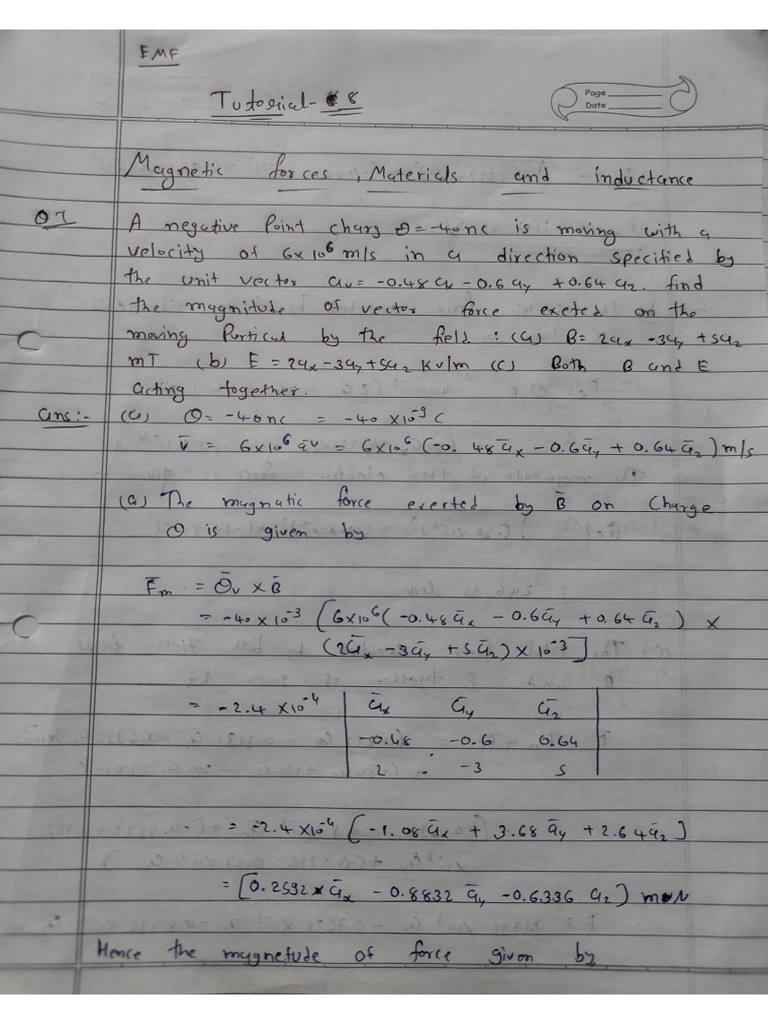 EMF
Tutorial - 8
Page
Date
Magnetic forces, Materials and inductance
Q1 A negative Point charg Q = -40nc is moving with a
velocity of 6×10⁶ m/s in a direction specified by
the unit vector av = -0.48 ax - 0.6 ay + 0.64 az. find
the magnitude of vector force exeted on the
moving Particul by the field : (a) B = 2ax - 3ay + 5az
mT (b) E = 2ax - 3ay + 5az Kv/m (c) Both B and E
acting together.
ans:- (a) Q = -40nc = -40 × 10⁻⁹ C
v̄ = 6×10⁶ āv = 6×10⁶ (-0.48 āx - 0.6 āy + 0.64 āz) m/s
(a) The magnatic force exerted by B̄ on Charge
Q is given by
F̄m = Q̄v × B̄
= -40×10⁻³ [6×10⁶ (-0.48 āx - 0.6 āy + 0.64 āz) ×
(2āx - 3āy + 5āz) × 10⁻³]
= -2.4 × 10⁻⁴ | āx āy āz |
| -0.48 -0.6 0.64 |
| 2 -3 5 |
= -2.4×10⁻⁴ [-1.08 āx + 3.68 āy + 2.64 āz]
= [0.2592 āx - 0.8832 āy - 0.6336 az) mN
Hence the magnetude of force given by